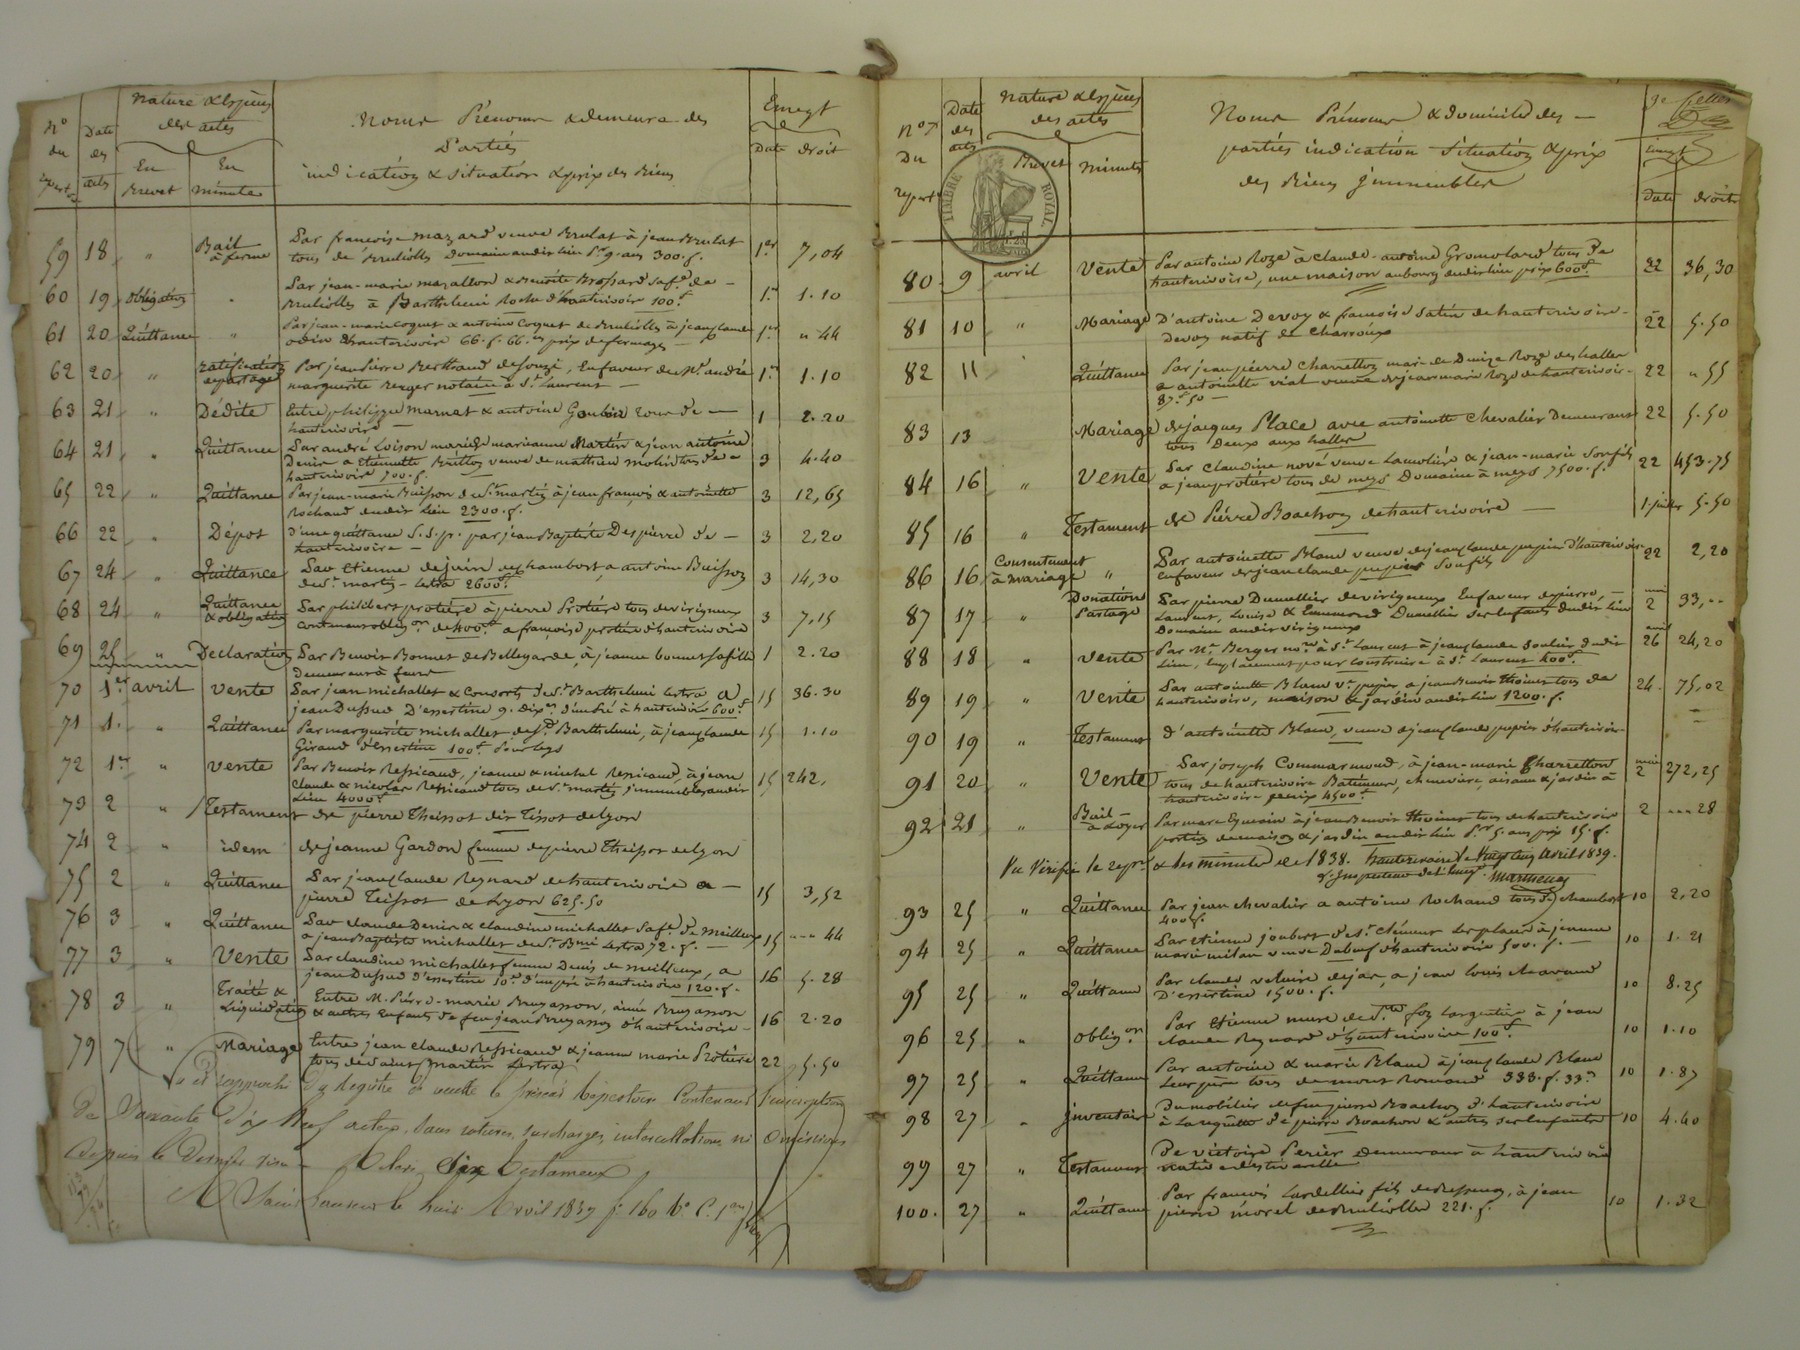 nature & Espèces
des actes
Nome Prénome & demeura des
Parties
indication & situation & prix des Biens
Enregt
N°
du
Date
des
actes
En
Brevet
En
minute
Date droit
59 18 " Bail à ferme Par françoise mazard veuve Brulat à jean Brulat 1er 7,04
tous de Brulioles Domaine audit lieu pr 9 ans 300. f.
60 19 obligation " Par jean-marie mazallon & Benoite Brossard sa fe. de 1er 1.10
Brulioles à Barthelemi Roche d'hauterivoire 100 f
61 20 Quittance " Par jean-marie Coquet & antoine Coquet de Brulioles à jean claude 1er " 44
odin d'hauterivoire 66. f. 66. c. prix de fermages
62 20 " ratification de partage Par jean Pierre Berthaud de souzi, En faveur de Me andré 1er 1.10
marguerite Berger notaire à St Laurent
63 21 " Dédite Entre philippe marnat & antoine Goubier tous de 1 2.20
hauterivoire
64 21 " Quittance Par andré Loison mari de marianne Martin & jean antoine 3 4.40
Denis a Etiennette Brillon veuve de mathieu molin tous de
hauterivoire 700. f.
65 22 " Quittance Par jean-marie Buisson de St martin à jean françois & antoinette 3 12,65
Rochand dudit Lieu 2300. f.
66 22 " Dépot d'une quittance S. S. p. par jean Baptiste Despierre de 3 2,20
hauterivoire
67 24 " Quittance Par Etienne dejuin de chambost, a antoine Buisson 3 14,30
de St martin Lestra 2600 f
68 24 " Quittance & obligation Par philibert protière à pierre Protière tous de virigneux 3 7,15
contenant oblig on de 400 f a françoise protière d'hauterivoire
69 25 " Declaration Par Benoit Bonnet de Bellegarde, à jeanne bonnet sa fille 1 2.20
demeurant à feurs
70 1er avril vente Par jean michallet & Consorts de St Barthelemi Lestra a 15 36.30
jean Dussud D'essertine 9. dix es d'emblé à hauterivoire 600 f
71 1. " Quittance Par marguerite michallet de St Barthelemi, à jean claude 15 1.10
Giraud d'Essertine 100 f pour legs
72 1er " vente Par Benoit Ressicaud, jeanne & michel Ressicaud, à jean 15 242,
Claude & nicolas Ressicaud tous de St martin, jmmeubles audit
Lieu 4000 f
73 2 " Testament de pierre Theissot dit Tissot de Lyon
74 2 " idem de jeanne Gardon femme de pierre Theissot de Lyon
75 2 " Quittance Par jean claude Reynard de hauterivoire a 15 3,52
pierre Teissot de Lyon 625.50
76 3 " Quittance Par claude Denis & claudine michallet sa fe. de meilleux 15 " 44
a jean Baptiste michallet de St Bmi Lestra 72. f.
77 3 " Vente Par claudine michallet femme Denis de meilleux, a 16 5.28
jean Dussud d'essertine 120. f.
78 3 " Traité & Liquidation Entre M. Pierre-marie Bruyasson, aimée Bruyasson 16 2.20
& autres Enfants de feu jean Bruyasson d'hauterivoire
79 7 " Mariage Entre jean claude Ressicaud & jeanne marie Protière 22 5.50
tous de Saint Martin Lestra
le présent Répertoire Contenant l'inscription
de Soixante Dix Neuf actes, Sans ratures, surcharges, intercallations, ni Omissions
depuis le Dernier visa Deux Testaments
A Saint Laurent le huit Avril 1839 f. 160
N°
Du
repert
Date
des
actes
nature & Espèces
des actes
Brevet minute
TIMBRE ROYAL
Nome Prénome & domicile des
parties indication Situation & prix
des Biens jmmeubles
Enregt
Date droits
80 9 avril Vente Par antoine Roze à claude-antoine Gromoland tous de 22 36,30
hauterivoire, une maison au bourg dudit lieu prix 600 f
81 10 " Mariage D'antoine Devoy & françoise Satin de hauterivoire 22 5.50
Devoy natif de Charroux
82 11 Quittance Par jean pierre Charretton mari de Denize Roze des halles 22 " 55
a antoinette vial veuve de jean marie Roze de hauterivoire
87. f 50
83 13 Mariage de jacques Place avec antoinette Chevalier Demeurant 22 5.50
tous Deux aux halles
84 16 " Vente Par Claudine nové veuve & jean-marie son fils 22 453.75
a jean protiere tous de meys Domaine à meys 7500. f.
85 16 " Testament de Pierre Boachon de hauterivoire 1. juillet 5.50
86 16 Consentement à mariage " Par antoinette Blanc veuve de jean claude pupier d'hauterivoire 22 2,20
En faveur de jean claude pupier son fils
87 17 " Donation Partage Par pierre Dumellier de virigneux En faveur de pierre, mai 2 33,--
Laurent, Louise & Emmerand Dumellier ses Enfants dudit lieu
Domaine audit virigneux
88 18 " vente Par Me Berger not re à St Laurent à jean claude Soulier dudit avril 26 24,20
Lieu, Emplacement pour construire à St Laurent 400 f.
89 19 " Vente Par antoinette Blanc ve pupier a jean Benoit Thoinet tous de 24. 75,02
hauterivoire, maison & jardin audit lieu 1200. f.
90 19 " Testament d'antoinette Blanc, veuve de jean claude pupier d'hauterivoire
91 20 " Vente Par joseph Commarmond, à jean-marie Charretton mai 2 272,25
tous de hauterivoire Batiments, cheneviere, aisances & jardin à
hauterivoire prix 4500 f
92 21 " Bail à Loyer Par marc Eymain à jean Benoit Thoinet tous de hauterivoire 2 " 28
portion de maison & jardin audit lieu pr 5. ans prix 15. f.
Vu Vérifié le repre & les minutes de 1838. hauterivoire le vingt cinq Avril 1839.
L'Inspecteur de l'Enregt
93 25 " Quittance Par jean chevalier a antoine Rochand tous de chambost 10 2,20
400 f.
94 25 " Quittance Par Etienne joubert de St Clément Les places à jeanne 10 1.21
marie milan veuve Dubeuf d'hauterivoire 500. f.
95 25 " Quittance Par claude veluire de jas, a jean louis chavand 10 8.25
D'essertine 1500. f.
96 25 " oblig on Par Etienne mure de Ste foy Largentière à jean 10 1.10
claude Reynard d'hauterivoire 100 f
97 25 " Quittance Par antoine & marie Blanc à jean claude Blanc 10 1.87
Leur père tous de mont Romand 333. f. 33 c
98 27 " jnventaire Du mobilier de feu pierre Boachon d'hauterivoire 10 4.40
à La requette de pierre Boachon & autres ses Enfants
99 27 " Testament De victoire Perier demeurant à hauterivoire
100. 27 " Quittance Par françois Lardellier fils de Ressens, à jean 10 1.32
pierre morel de Brulioles 221. f.